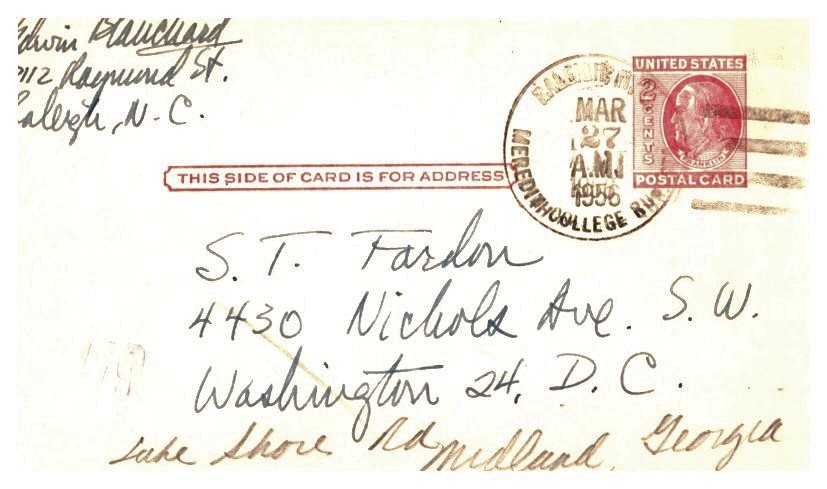 Edwin Blanchard
2112 Raymond St.
Raleigh, N. C.
UNITED STATES
2
CENTS
FRANKLIN
POSTAL CARD
RALEIGH, N.C.
MAR
27
A.M.
1956
MEREDITH COLLEGE RUR.
THIS SIDE OF CARD IS FOR ADDRESS
S. T. Fardon
4430 Nichols Ave. S. W.
Washington 24, D. C.
Lake Shore Rd Midland, Georgia